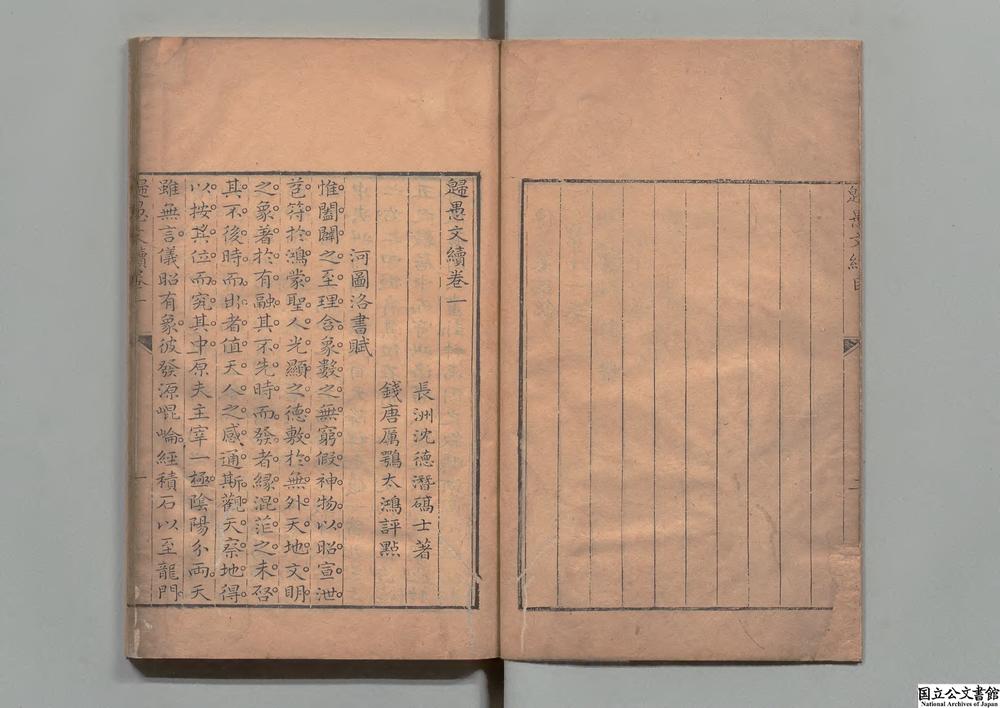 歸愚文續目
二
歸愚文續卷一
長洲沈德潛碻士著
錢唐厲鶚太鴻評點
河圖洛書賦
惟闔闢之至理含象數之無窮假神物以昭宣泄
苞符於鴻蒙聖人光顯之德敷於無外天地文明
之象著於有融其不先時而發者緣混茫之未启
其不後時而出者值天人之感通斯觀天察地得
以按其位而究其中原夫主宰一極陰陽分兩天
雖無言儀昭有象彼發源崐崘經積石以至龍門
歸愚文續卷一
一
国立公文書館
National Archives of Japan